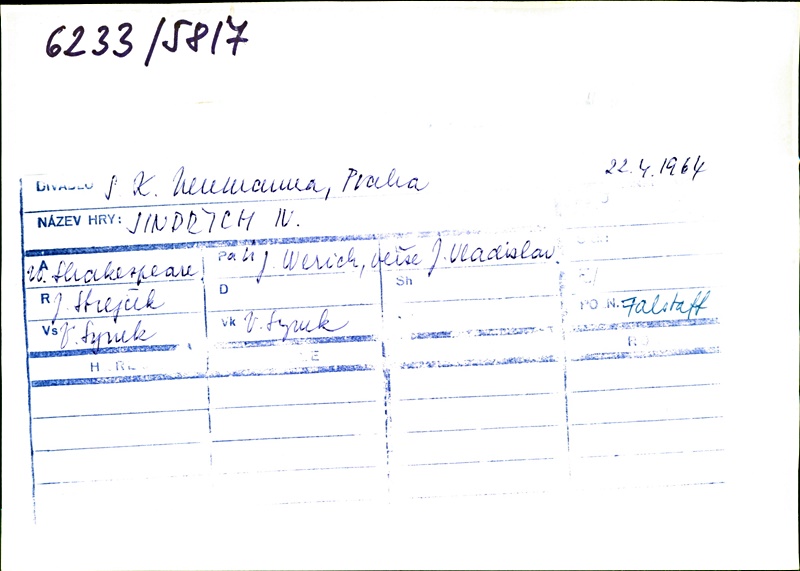 6233/5817
22.4.1964
DIVADLO S K. Neumanna, Praha
NÁZEV HRY: JINDŘICH IV.
A W. Shakespeare
J. Werich, verše J. Vladislav.
R J. Strejček
D
Sh
POZN. Falstaff
Vs V. Synek
Vk V. Synek